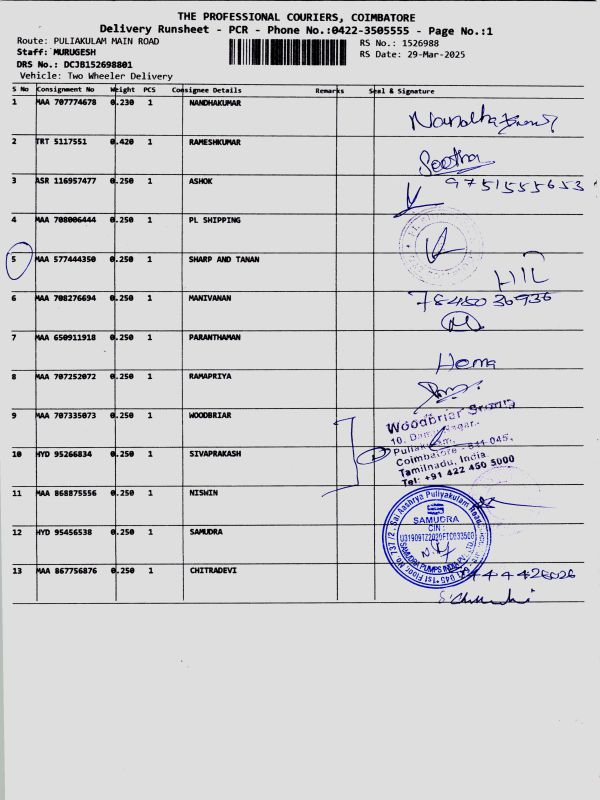 THE PROFESSIONAL COURIERS, COIMBATORE
Delivery Runsheet - PCR - Phone No.:0422-3505555 - Page No.:1
Route: PULIAKULAM MAIN ROAD RS No.: 1526988
Staff: MURUGESH RS Date: 29-Mar-2025
DRS No.: DCJB152698801
Vehicle: Two Wheeler Delivery
S No Consignment No Weight PCS Consignee Details Remarks Seal & Signature
1 MAA 707774678 0.230 1 NANDHAKUMAR
2 TRT 5117551 0.420 1 RAMESHKUMAR
3 ASR 116957477 0.250 1 ASHOK 9751555653
4 MAA 708006444 0.250 1 PL SHIPPING
5 MAA 577444350 0.250 1 SHARP AND TANAN
6 MAA 708276694 0.250 1 MANIVANAN
7 MAA 650911918 0.250 1 PARANTHAMAN Hema
8 MAA 707252072 0.250 1 RAMAPRIYA
9 MAA 707335073 0.250 1 WOODBRIAR Woodbriar
10, Nagar,
Coimbatore - 641 045,
Tamilnadu, India
Tel: +91 422 450 5000
10 HYD 95266834 0.250 1 SIVAPRAKASH
11 MAA 868875556 0.250 1 NISWIN
12 HYD 95456538 0.250 1 SAMUDRA SAMUDRA
CIN :
13 MAA 867756876 0.250 1 CHITRADEVI